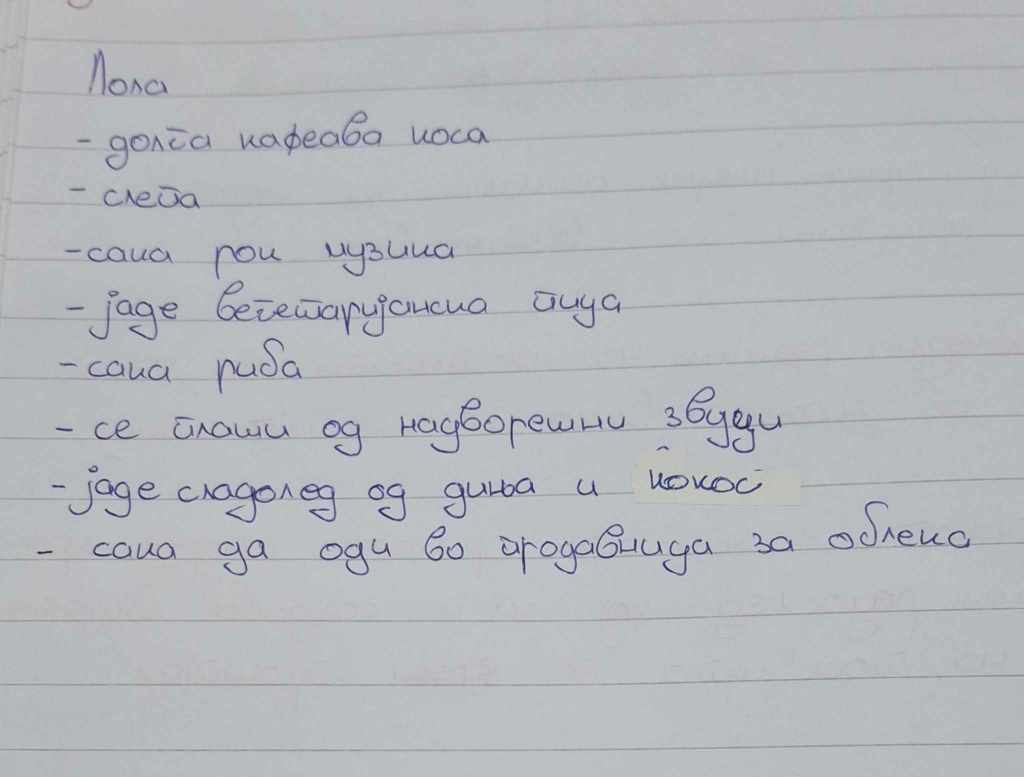 Лола
- долга кафеава коса
- слепа
- сака рок музика
- јаде вегетаријанска пица
- сака риба
- се плаши од надворешни звуци
- јаде сладолед од диња и кокос
- сака да оди во продавница за облека